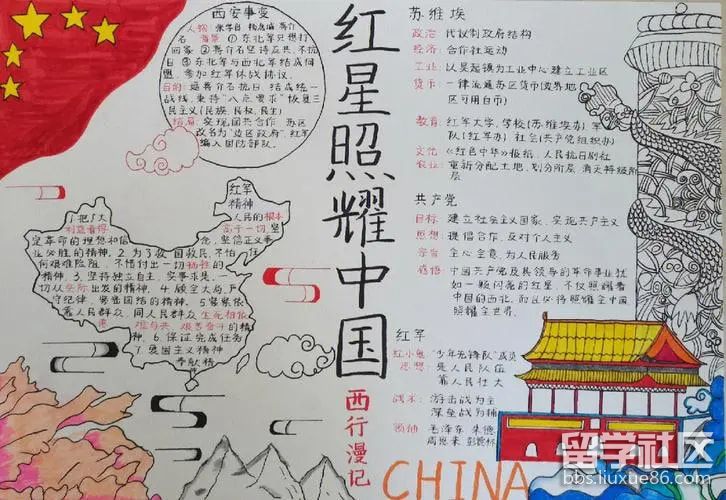 西安事变
人物:张学良 杨虎城 蒋介
石 背景:①东北军只想打
回家 ②蒋介石坚持反共,不抗
日 ③东北军与西北军结成同
盟,参加红军休战协议。
目的:逼蒋介石抗日 结成统一
战线,秉持“八点要求”恢复三
民主义(民族,民权,民生)
结局:实现国共合作 苏区
改名为“边区政府”,红军
编入国防部队。
红军
精神
人民的根本
高于一切,坚
定信正义事
1.把广大
利益看得
定革命的理想和信
业必胜的精神。2.为了救国救民,不怕
何艰难险阻,不惜付出一切牺牲的
精神。3.坚持独立自主,实事求是,一
切从实际出发的精神。4.顾全大局,严
守纪律,紧密团结的精神。5.紧紧依
靠人民群众,同人民群众生死相依
患难与共,艰苦奋斗的精
神。6.保证完成任务
7.爱国主义精神
奉献精
红星照耀中国
西行漫记
苏维埃
政治:代议制政府结构
经济:合作社运动
工业:以吴起镇为工业中心建立工业区
货币:一律流通苏区货币(边界地
区可用白币)
教育:红军大学,学校(苏维埃办)军
队(红军办)社会(共产党组织办)
文化:《红色中华》报纸,人民抗日剧社
农业:重新分配土地,划分阶层,消灭特级阶
层
共产党
目标:建立社会主义国家,实现共产主义
思想:提倡合作,反对个人主义
宗旨:全心全意,为人民服务
感悟:中国共产党及其领导的革命事业犹
如一颗闪亮的红星,不仅照耀着
中国的西北,而且必将照耀全中国
照耀全世界。
红军
红小鬼:“少年先锋队”成员
思想:是人民队伍
靠人民壮大
战术:游击战为主
深垒战为辅
领袖:毛泽东 朱德
周恩来 彭德怀
CHINA
留学社区
bbs.liuxue86.com